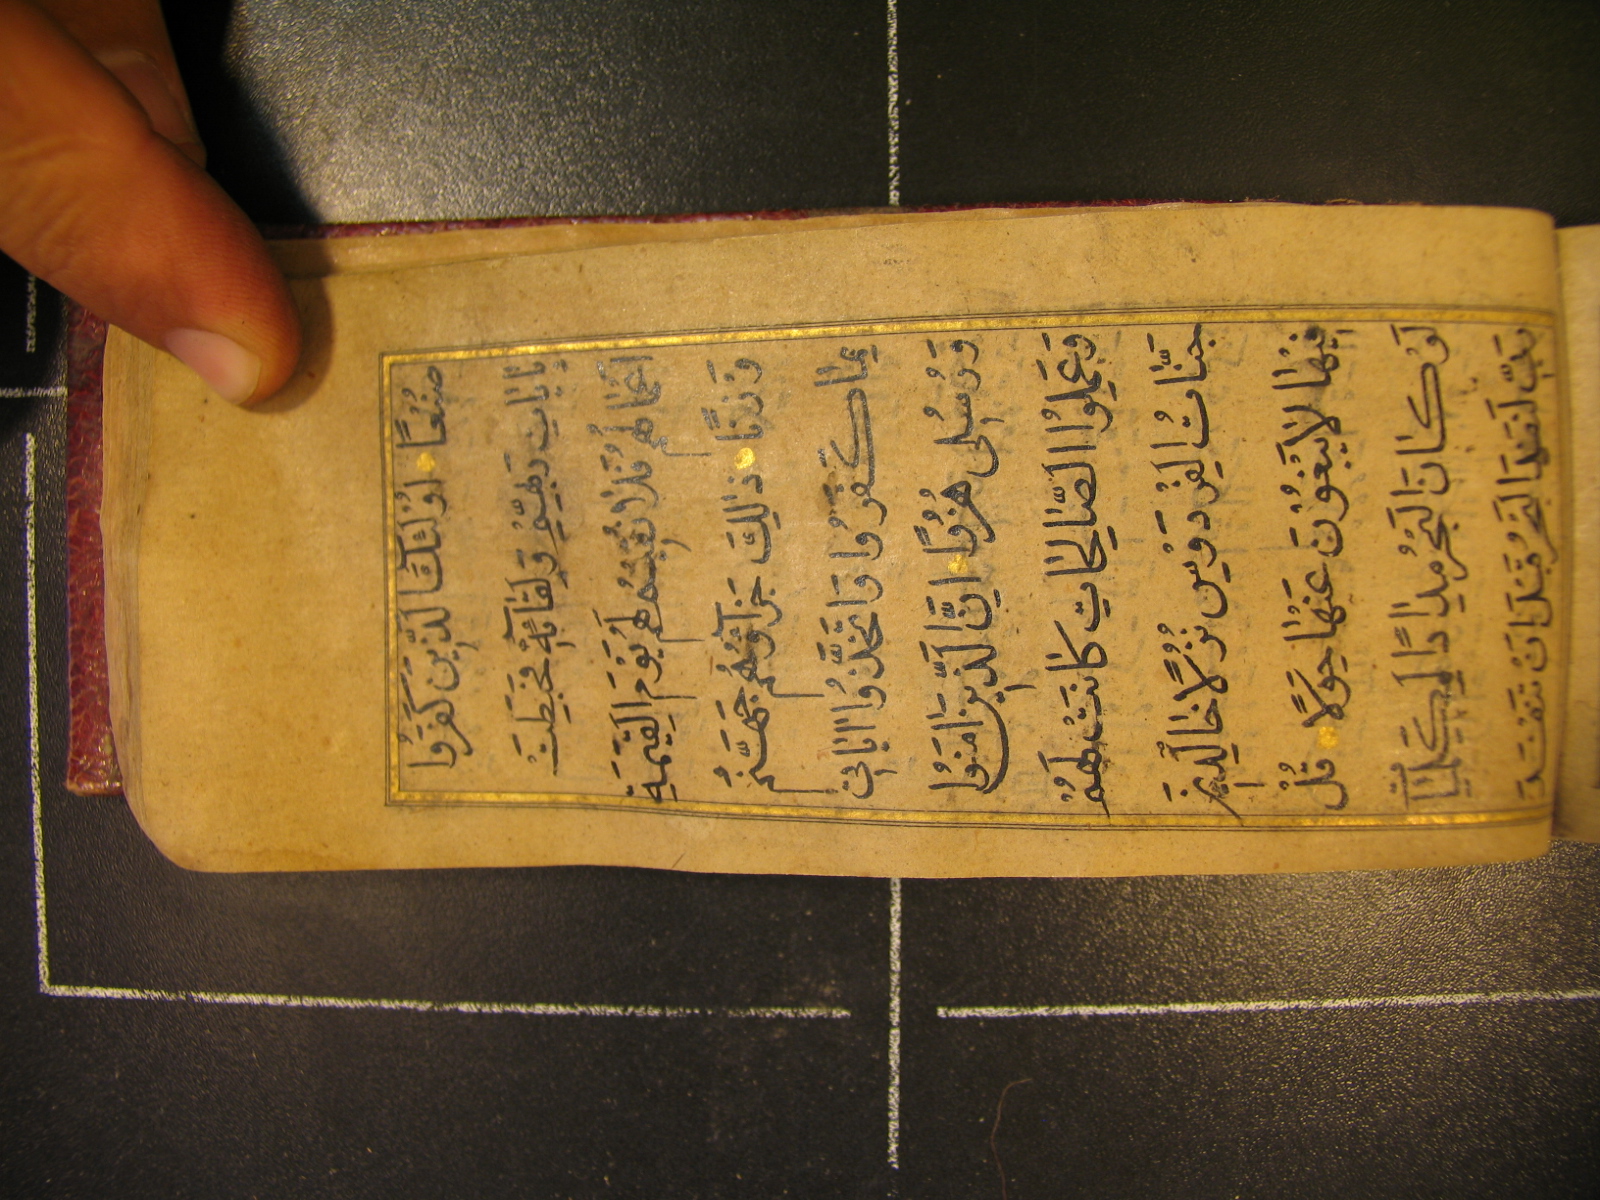 صُنْعًا اُولٰئِكَ الَّذِينَ كَفَرُوا
بِاٰيَاتِ رَبِّهِمْ وَلِقَائِهِ فَحَبِطَتْ
اَعْمَالُهُمْ فَلَا نُقِيمُ لَهُمْ يَوْمَ الْقِيٰمَةِ
وَزْنًا ذٰلِكَ جَزَاؤُهُمْ جَهَنَّمُ
بِمَا كَفَرُوا وَاتَّخَذُوا اٰيَاتِى
وَرُسُلِى هُزُوًا اِنَّ الَّذِينَ اٰمَنُوا
وَعَمِلُوا الصَّالِحَاتِ كَانَتْ لَهُمْ
جَنَّاتُ الْفِرْدَوْسِ نُزُلًا خَالِدِينَ
فِيهَا لَا يَبْغُونَ عَنْهَا حِوَلًا قُلْ
لَوْ كَانَ الْبَحْرُ مِدَادًا لِكَلِمَاتِ
رَبِّى لَنَفِدَ الْبَحْرُ قَبْلَ اَنْ تَنْفَدَ